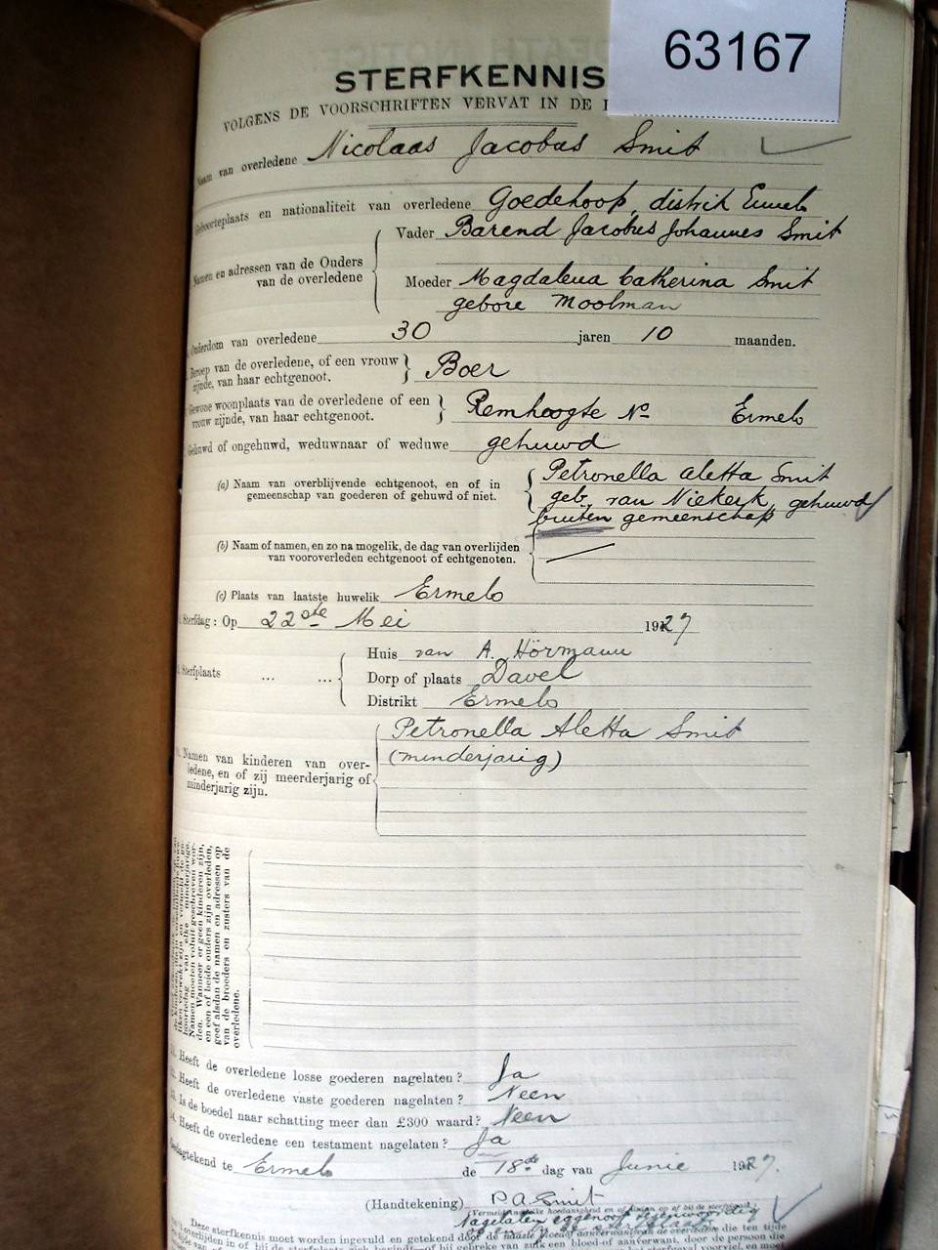 63167
STERFKENNIS
VOLGENS DE VOORSCHRIFTEN VERVAT IN DE
Naam van overledene Nicolaas Jacobus Smit
Geboorteplaats en nationaliteit van overledene Goedehoop, distrik Ermelo
Namen en adressen van de Ouders van de overledene
Vader Barend Jacobus Johannes Smit
Moeder Magdalena Catherina Smit
gebore Moolman
Ouderdom van overledene 30 jaren 10 maanden.
Beroep van de overledene, of een vrouw
zijnde, van haar echtgenoot. Boer
Gewone woonplaats van de overledene of een
vrouw zijnde, van haar echtgenoot. Remhoogte No Ermelo
Gehuwd of ongehuwd, weduwnaar of weduwe gehuwd
(a) Naam van overblijvende echtgenoot, en of in
gemeenschap van goederen of gehuwd of niet.
Petronella Aletta Smit
geb. van Niekerk, gehuwd
buiten gemeenschap
(b) Naam of namen, en zo na mogelik, de dag van overlijden
van vooroverleden echtgenoot of echtgenoten.
(c) Plaats van laatste huwelik Ermelo
Sterfdag: Op 22ste Mei 1927
Sterfplaats ... ...
Huis van A. Hörmann
Dorp of plaats Davel
Distrikt Ermelo
Namen van kinderen van over-
ledene, en of zij meerderjarig of
minderjarig zijn.
Petronella Aletta Smit
(minderjarig)
Namen moeten voluit geschreven wor-
den. Wanneer er geen kinderen zijn,
en een of beide ouders zijn overleden,
geef alsdan de namen en adressen op
van de broeders en zusters van de
overledene.
Heeft de overledene losse goederen nagelaten? Ja
Heeft de overledene vaste goederen nagelaten? Neen
Is de boedel naar schatting meer dan £300 waard? Neen
Heeft de overledene een testament nagelaten? Ja
Gedagtekend te Ermelo de 18de dag van Junie 1927.
(Handtekening) P.A. Smit
Nagelaten eggenoot
Deze sterfkennis moet worden ingevuld en getekend door de naaste